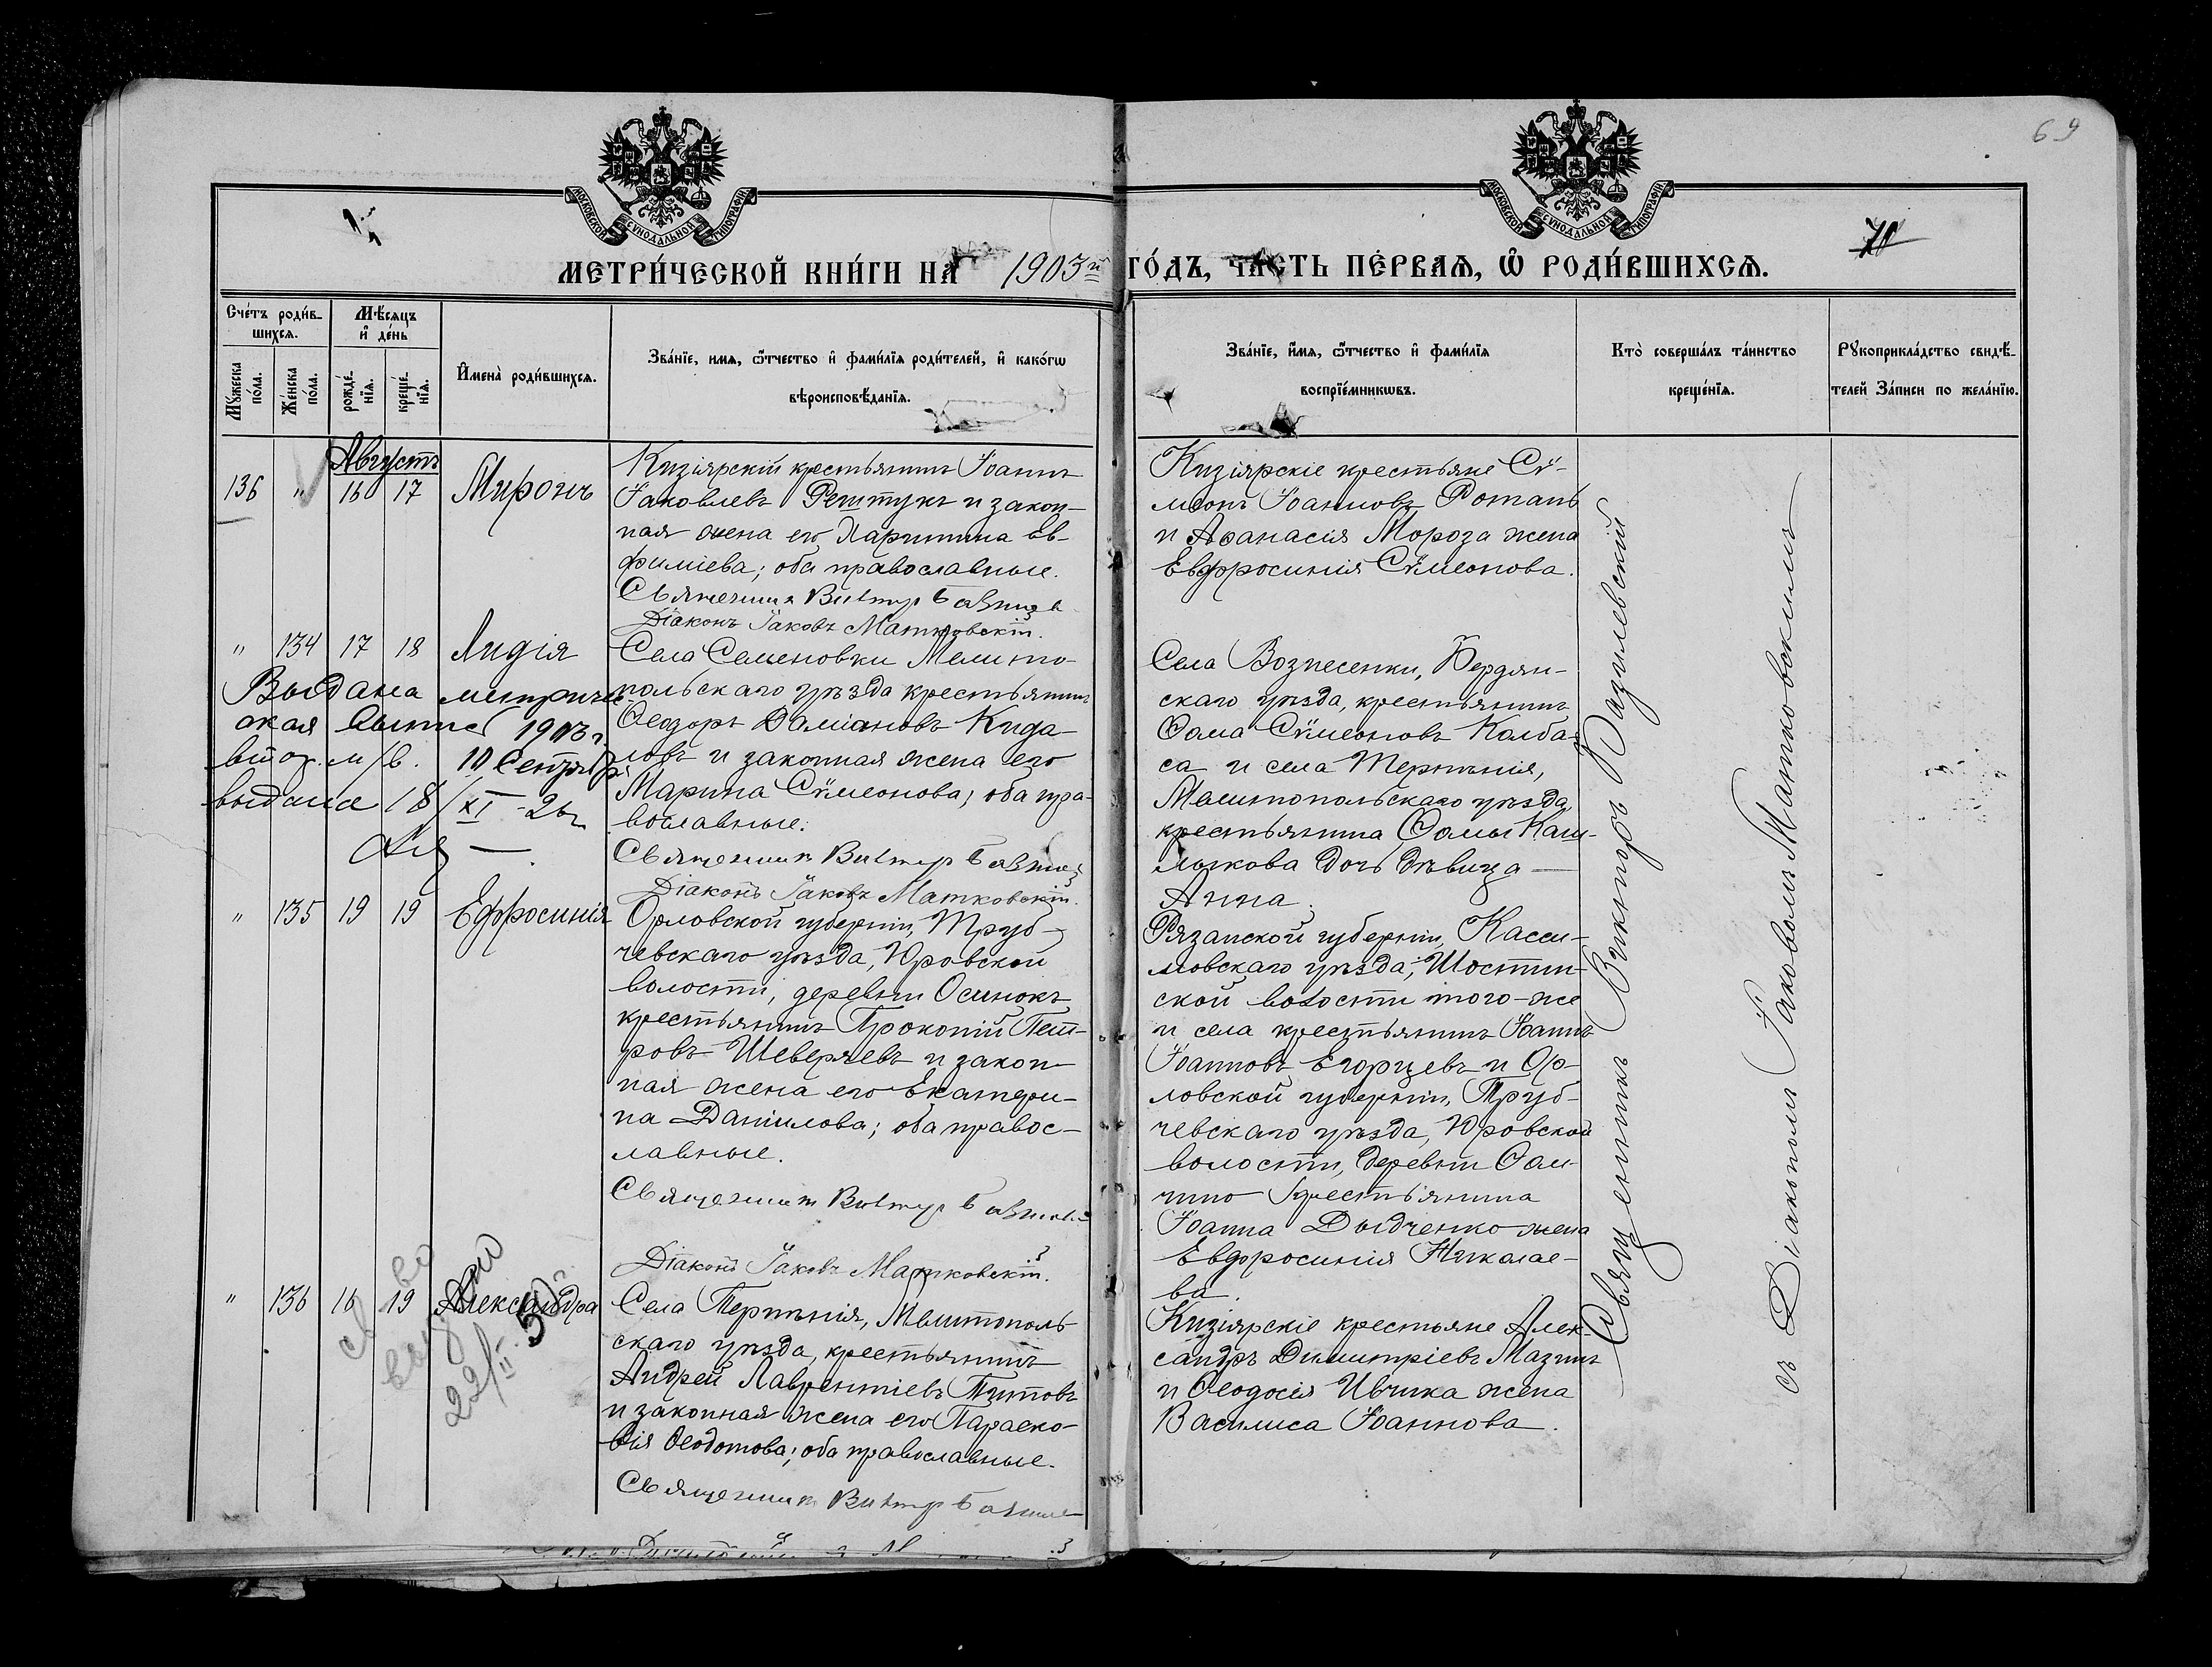 69
70
МОСКОВСКОЙ СѴНОДАЛЬНОЙ ТИПОГРАФІИ
МОСКОВСКОЙ СѴНОДАЛЬНОЙ ТИПОГРАФІИ
МЕТРИ́ЧЕСКОЙ КНИ́ГИ НА 1903й ГО́ДЪ, ЧА́СТЬ ПЕ́РВАЯ, Ѡ РОДИ́ВШИХСЯ.
Сче́тъ роди́в-
шихся.
Мѣ́сяцъ
и де́нь
Му́жеска по́ла.
Же́нска по́ла.
рожде́-
нія.
креще́-
нія.
Имена̀ роди́вшихся.
Зва́нїе, имя, ѿтчество и фами́лїя роди́телей, и како́гѡ
вѣроисповѣ́данїя.
Зва́нїе, и́мя, ѿтчество и фами́лїя
воспрїе́мникѡвъ.
Кто̀ соверша́лъ та́инство
креще́нїя.
Рꙋкоприкла́дство свидѣ́-
телей За́писи по жела́нїю.
Августъ
136 " 16 17 Миронъ
Кизіярскій крестьянинъ Іоаннъ
Іаковлевъ Рештукъ и закон-
ная жена его Харитина Ев-
фиміева; оба православные.
Священникъ Викторъ
Діаконъ Іаковъ Матковскій.
Кизіярскіе крестьяне Сѵ-
меонъ Іоанновъ Романъ
и Аѳанасія Мороза жена
Евфросинія Сѵмеонова.
" 134 17 18 Лидія
Выдана метриче
ская выпись 1903 г.
втор. м/в. 10 Сентября
выдана 18/XI-26г
Села Семеновки Мелито-
польскаго уѣзда крестьянинъ
Ѳеодоръ Даміановъ Кида-
ловъ и законная жена его
Марина Сѵмеонова; оба пра-
вославные.
Священникъ Викторъ
Діаконъ Іаковъ Матковскій.
Села Вознесенки, Бердян-
скаго уѣзда, крестьянинъ
Ѳома Сѵмеоновъ Колба-
са и села Терпѣнія,
Мелитопольскаго уѣзда,
крестьянина Ѳомы Каш-
лакова дочь дѣвица —
Анна.
" 135 19 19 Ефросинія
Орловской губерніи, Труб-
чевскаго уѣзда, Юровской
волости, деревни Осинокъ
крестьянинъ Прокопій Пет-
ровъ Шеверяевъ и закон-
ная жена его Екатери-
на Даніилова; оба правос-
лавные.
Священникъ Викторъ
Діаконъ Іаковъ Матковскій.
Рязанской губерніи, Касси-
мовскаго уѣзда, Шостин-
ской волости того-же
и села крестьянинъ Іоаннъ
Іоанновъ Егорцевъ и Ор-
ловской губерніи, Труб-
чевскаго уѣзда, Юровской
волости, деревни
крестьянина
Іоанна Дыдченко жена
Евфросинія Николае-
ва.
" 136 16 19 Александра
22/II 50
Села Терпѣнія, Мелитополь-
скаго уѣзда, крестьянинъ
Андрей Лаврентіевъ Титовъ
и законная жена его Параске-
вія Ѳеодотова; оба православные.
Священникъ Викторъ
Кизіярскіе крестьяне Алек-
сандръ Димитріевъ Мазинъ
и Ѳеодосія Ивчика жена
Василиса Іоаннова.
Священникъ Викторъ Базилевскій
съ Діакономъ Іаковомъ Матковскимъ